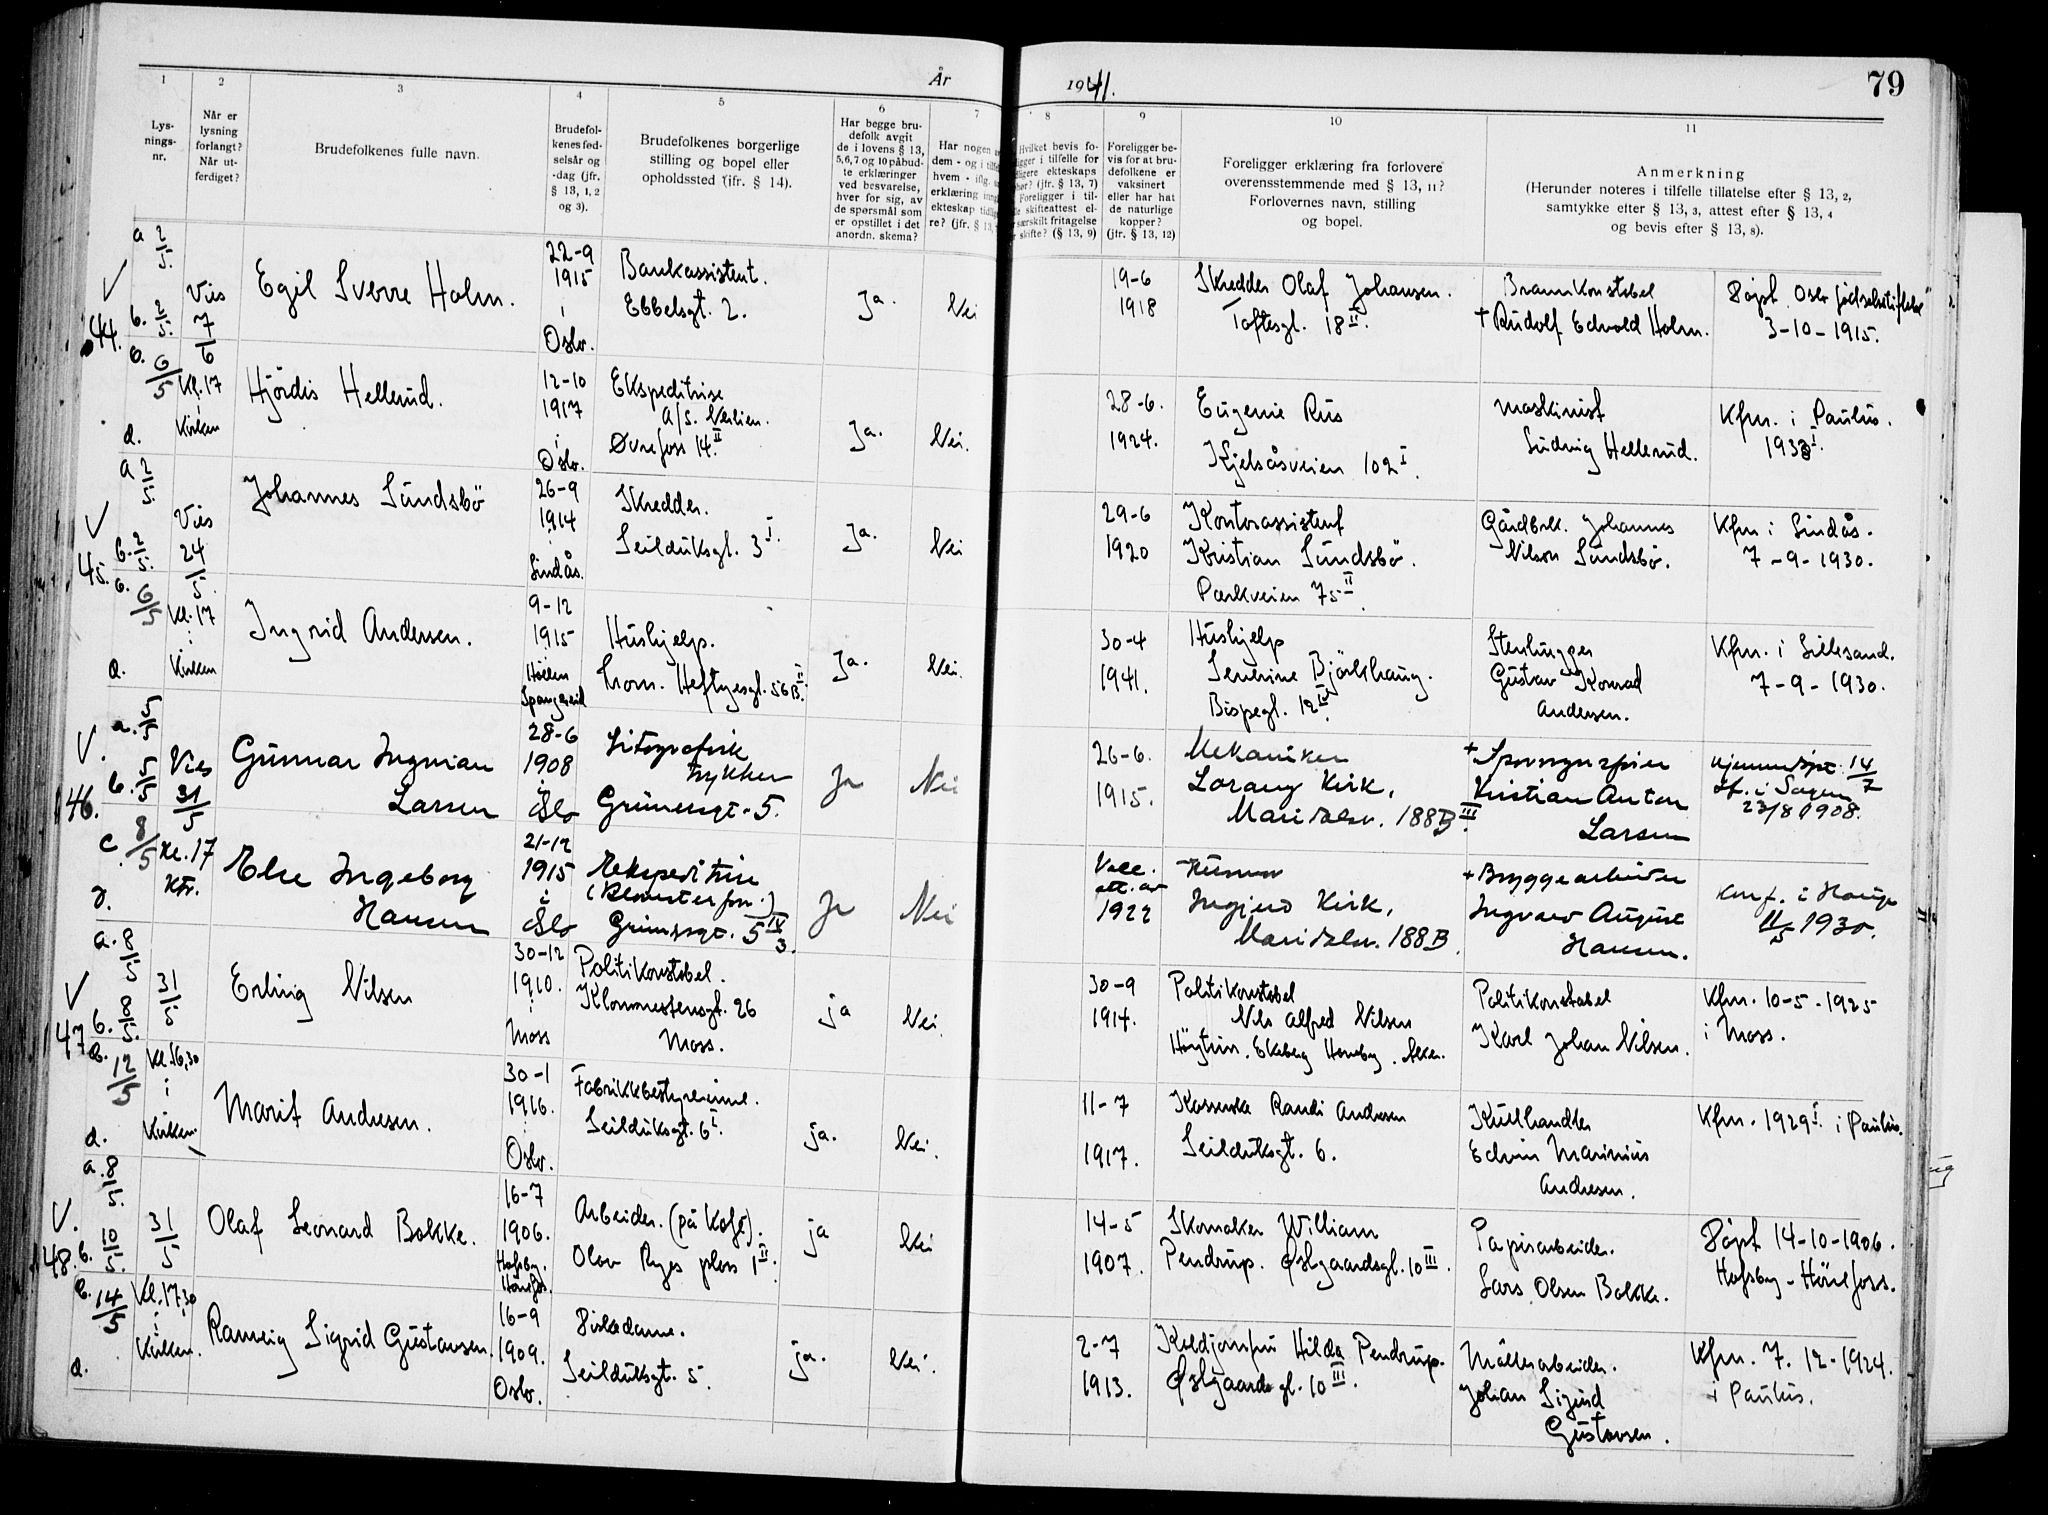 År 1941.
79
1
2
3
4
5
6
7
8
9
10
11
Lys-
nings-
nr.
Når er
lysning
forlangt?
Når ut-
ferdiget?
Brudefolkenes fulle navn.
Brudefol-
kenes fød-
selsår og
-dag (jfr.
§ 13, 1, 2
og 3).
Brudefolkenes borgerlige
stilling og bopel eller
opholdssted (jfr. § 14).
Har begge bru-
defolk avgit
de i lovens § 13,
5, 6, 7 og 10 påbud-
te erklæringer
ved besvarelse,
hver for sig, av
de spørsmål som
er opstillet i det
anordn. skema?
Har nogen
dem - og i
hvem - iflg.
erklæring
ekteskap
re? (jfr. § 13,
Hvilket bevis fo-
ligger i tilfelle for
ekteskaps
(jfr. § 13, 7)
Foreligger i til-
skifteattest el-
særskilt fritagelse
skifte? (§ 13, 9)
Foreligger be-
vis for at bru-
defolkene er
vaksinert
eller har hat
de naturlige
kopper?
(jfr. § 13, 12)
Foreligger erklæring fra forlovere
overensstemmende med § 13, 11?
Forlovernes navn, stilling
og bopel.
Anmerkning
(Herunder noteres i tilfelle tillatelse efter § 13, 2,
samtykke efter § 13, 3, attest efter § 13, 4
og bevis efter § 13, 8).
44.
a 2/5.
b. 2/5.
c. 6/5
d.
Vies
7/6
Kl. 17
i
Kirken
Egil Sverre Holm.
22-9
1915
i
Oslo.
Bankassistent.
Ebbelsgt. 2.
Ja.
Nei
19-6
1918
Skredder Olaf Johansen.
Toftesgt. 18 II.
Brannkonstabel
† Rudolf Edvold Holm.
Döpt. Oslo födselsstiftelse
3-10-1915.
Hjördis Hellerud.
12-10
1917
i
Oslo.
Ekspeditrise
Øvrefoss 14 II.
Ja.
Nei.
28-6.
1924.
Eugenie Rus
Kjelsåsveien 102 I.
Maskinist
Ludvig Hellerud.
Kfm. i Paulus.
45.
a 2/5
b. 2/5.
c. 6/5
d.
Vies
24/5.
Kl. 17
i
Kirken
Johannes Sundsbö
26-9
1914
Lindås.
Skredder.
Seilduksgt. 3 I.
Ja.
Nei
29-6
1920
Kontorassistent
Kristian Sundsbö.
Parkveien 75 II.
Gårdbrk. Johannes
Nilson Sundsbö.
Kfm i Lindås.
7-9-1930.
Ingrid Andersen.
9-12
1915
Spangereid
Hushjelp.
Thom. Heftyesgt. 56 B. II
Ja.
Nei.
30-4
1941.
Hushjelp
Severine Björkhaug.
Bispegt. 12
Stenhugger
Gustav Konrad
Andersen.
Kfm. i Lillesand.
7-9-1930.
146.
a. 5/5
b. 5/5
c. 8/5
d.
Vies
31/5
Kl. 17
Gunnar Ingvian
Larsen
28-6
1908
i
Oslo
Litografisk
trykker
Grünersgt. 5.
Ja
Nei
26-6.
1915.
Mekaniker
Lorang Kirk,
Maridalsv. 188 B III.
Kristian Anton
Larsen
Hjemmedöpt 14/7
st. i Sagene
23/8 1908.
Else Ingeborg
Hansen
21-12
1915
i
Oslo
Ekspeditrise
(Blomsterforr.)
Grünersgt. 5 IV
3.
Ja
Nei
Vakc.
att. av
1922
Husmor
Ingjerd Kirk,
Maridalsv. 188 B.
+ Bryggearbeider
Ingvald August
Hansen.
Konf. i Hauge
11/5 1930.
147
a. 8/5
b. 8/5.
c. 12/5
d.
31/5
Kl. 16,30
i
Kirken.
Erling Nilsen
30-12
1910.
i
Moss
Politikonstabel.
Klommestensgt. 26
Moss.
ja
Nei.
30-9
1914.
Politikonstabel
Nils Alfred Nilsen
Politikonstabel
Karl Johan Nilsen.
Kfm. 10-5-1925
i Moss.
Marit Andresen.
30-1
1916.
Oslo.
Fabrikkbestyrerinne.
Seilduksgt. 6 I.
ja.
Nei.
11-7
1917.
Randi Andresen
Seilduksgt. 6.
Kullhandler
Edvin Marinius
Andresen.
Kfm. 1929 I. i Paulus.
148.
a. 8/5.
b. 10/5.
c. 14/5
d.
31/5
Kl. 17.30
i
Kirken.
Olaf Leonard Bakke.
16-7
1906.
Hofsby.
Hönefoss.
Arbeider. (på Kafé).
Olav Ryes plass 1 II.
ja
Nei
14-5
1907.
Skomaker William
Pendrup. Østgaardsgt. 10 III.
Papirarbeider.
Lars Olsen Bakke.
Döpt 14-10-1906.
Hofsby - Hönefoss.
Ranveig Sigrid Gustavsen.
16-9
1909.
Oslo.
Diskedame.
Seilduksgt. 5.
ja.
Nei.
2-7
1913.
Koldjomfru Hilda Pendrup.
Østgaardsgt. 10 III.
Möllearbeider.
Johan Sigurd
Gustavsen.
Kfm. 7. 12-1924.
i Paulus.